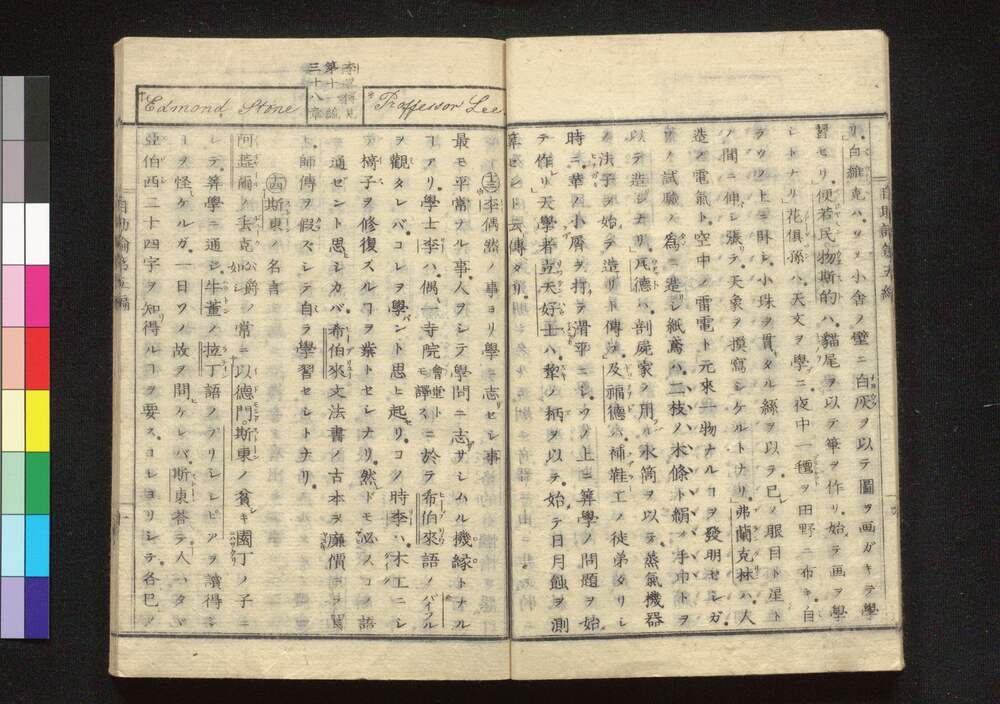 リ。白維克ハ。ワノ小舎ノ壁ニ白灰ヲ以テ圖ヲ画ガキテ學
習セリ。便若民物斯的ハ。貓尾ヲ以テ筆ヲ作リ。始テ画ヲ學
シトナリ。花俱孫ハ。天文ヲ學ニ。夜中一氈ヲ田野ニ布キ。自
ラソノ上ニ臥シ。小珠ヲ貫タル絲ヲ以テ。己ノ眼目ト星ト
ノ間ニ伸シ張テ。天象ヲ摸寫シケルトナリ。弗蘭克林ハ。人
造ノ電氣ト。空中ノ雷電ト。元來一物ナルコヲ發明セシガ。
ノ試驗ノ為ニ造シ紙鳶ハ。二枝ノ木條ト絹ノ手巾トヲ
以テ造シナリ。瓦德ハ。剖屍家ノ用ル水筒ヲ以テ。蒸氣機器
ノ法子ヲ始テ造リト傳フ。及福德ハ。補鞋工ノ徒弟タリシ
時ニ。革ノ小屑ヲ打テ滑平ニシ。ソノ上ニ算學ノ問題ヲ始
テ作リ。天學者立天好士ハ。犂ノ柄ヲ以テ。始テ日月蝕ヲ測
算セシト云傳タリ。
Proffessor Lee
李
第十
三十八章
十三 李偶然ノ事ヨリ學ニ志セシ事
最モ平常ナル事。人ヲシテ學問ニ志サシムル機緣トナル
コアリ。學士李ハ。偶一寺院會堂トモ譯スニ於テ希伯來語ノバイブル
ヲ觀タレバ。コレヲ學ントノ思ヒ起リ。コノ時李ハ。木工ニシ
テ。椅子ヲ修復スルコヲ業トセシナリ。然ドモ必ズコノ語
ニ通ゼント思シカバ。希伯來文法書ノ古本ヲ廉價ニテ買
ヒ。師傳ヲ假ズシテ自ラ學習セシトナリ。
Edmond Stone
十四 斯東ノ名言
阿爾ノ克公爵ノ如シ常ニ以德門斯東ノ貧キ園丁ノ子ニ
シテ。算學ニ通シ。牛董ノ拉丁語ノプリンシピアヲ讀得シ
コヲ怪ケルガ。一日ソノ故ヲ問ケレバ。斯東荅テ。人ハタヾ
亞伯西二十四字ヲ知得ルコヲ要ス。コレヨリシテ。各己ノ